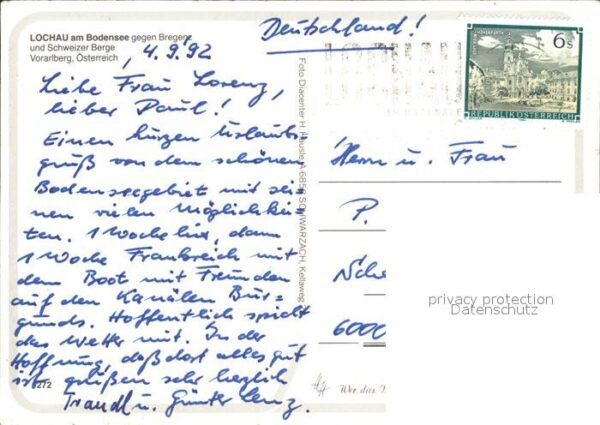 LOCHAU am Bodensee gegen Bregenz
und Schweizer Berge
Vorarlberg, Österreich
, 4.9.92
Liebe Frau Lorenz,
lieber Paul!
Einen kurzen Urlaubs=
gruß von dem schönen
Bodenseegebiet mit sei
nen vielen Möglichkei
ten. 1 Woche hier, dann
1 Woche Frankreich mit
dem Boot mit Freunden
auf den Kanälen Bur=
gunds. Hoffentlich spielt
das Wetter mit. In der
Hoffnung, daß dort alles gut
ist grüßen sehr herzlich
Traudl u. Günter Lenz.
272
Foto Diacenter H. Häusle A 6858 SCHWARZACH, Kellaweg
Deutschland!
6 S
REPUBLIK ÖSTERREICH
Herrn u. Frau
P.
Sche
6000
privacy protection
Datenschutz
Wer das